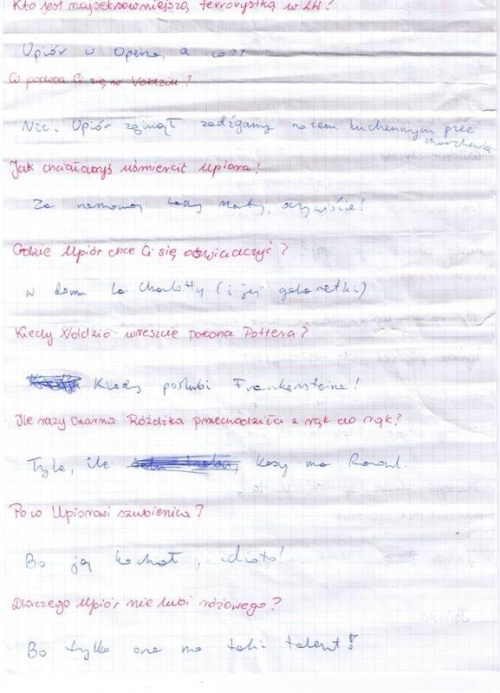 Kto jest najseksowniejszą terrorystką w LH?
Upiór w Operze, a co?!
Co podoba Ci się w Voldziu?
Nic. Upiór zginął zadźgany nożem kuchennym przez
Jak chciałabyś uśmiercić Upiora?
Za namową Marty, oczywiście!
Gdzie Upiór chce Ci się oświadczyć?
w domu La Charlotty (i jej galaretki)
Kiedy Voldzio wreszcie pokona Pottera?
Kiedy poślubi Frankensteina!
Ile razy Czarna Różdżka przechodziła z rąk do rąk?
Tyle, ile kasy ma Raoul.
Po co Upiorowi szubienica?
Bo ją kochał, idioto!
Dlaczego Upiór nie lubi różowego?
Bo tylko ona ma taki talent!